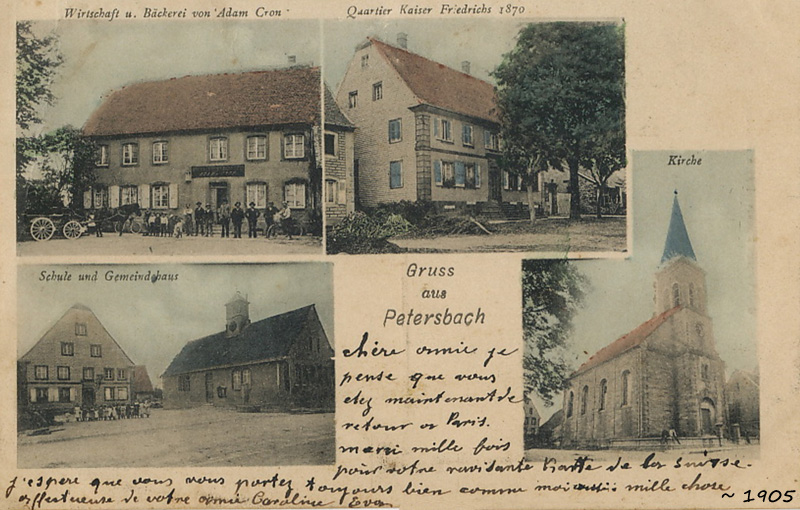 Wirtschaft u. Bäckerei von Adam Cron
Quartier Kaiser Friedrichs 1870
Kirche
Schule und Gemeindehaus
Gruss
aus
Petersbach
chère amie je
pense que vous
etez maintenant de
retour a Paris.
merci mille fois
pour votre ravisante Kartte de la Suisse.
j'espere que vous vous portez toujours bien comme moi aussi mille chose
affectueuse de votre amie Caroline Eva
~ 1905